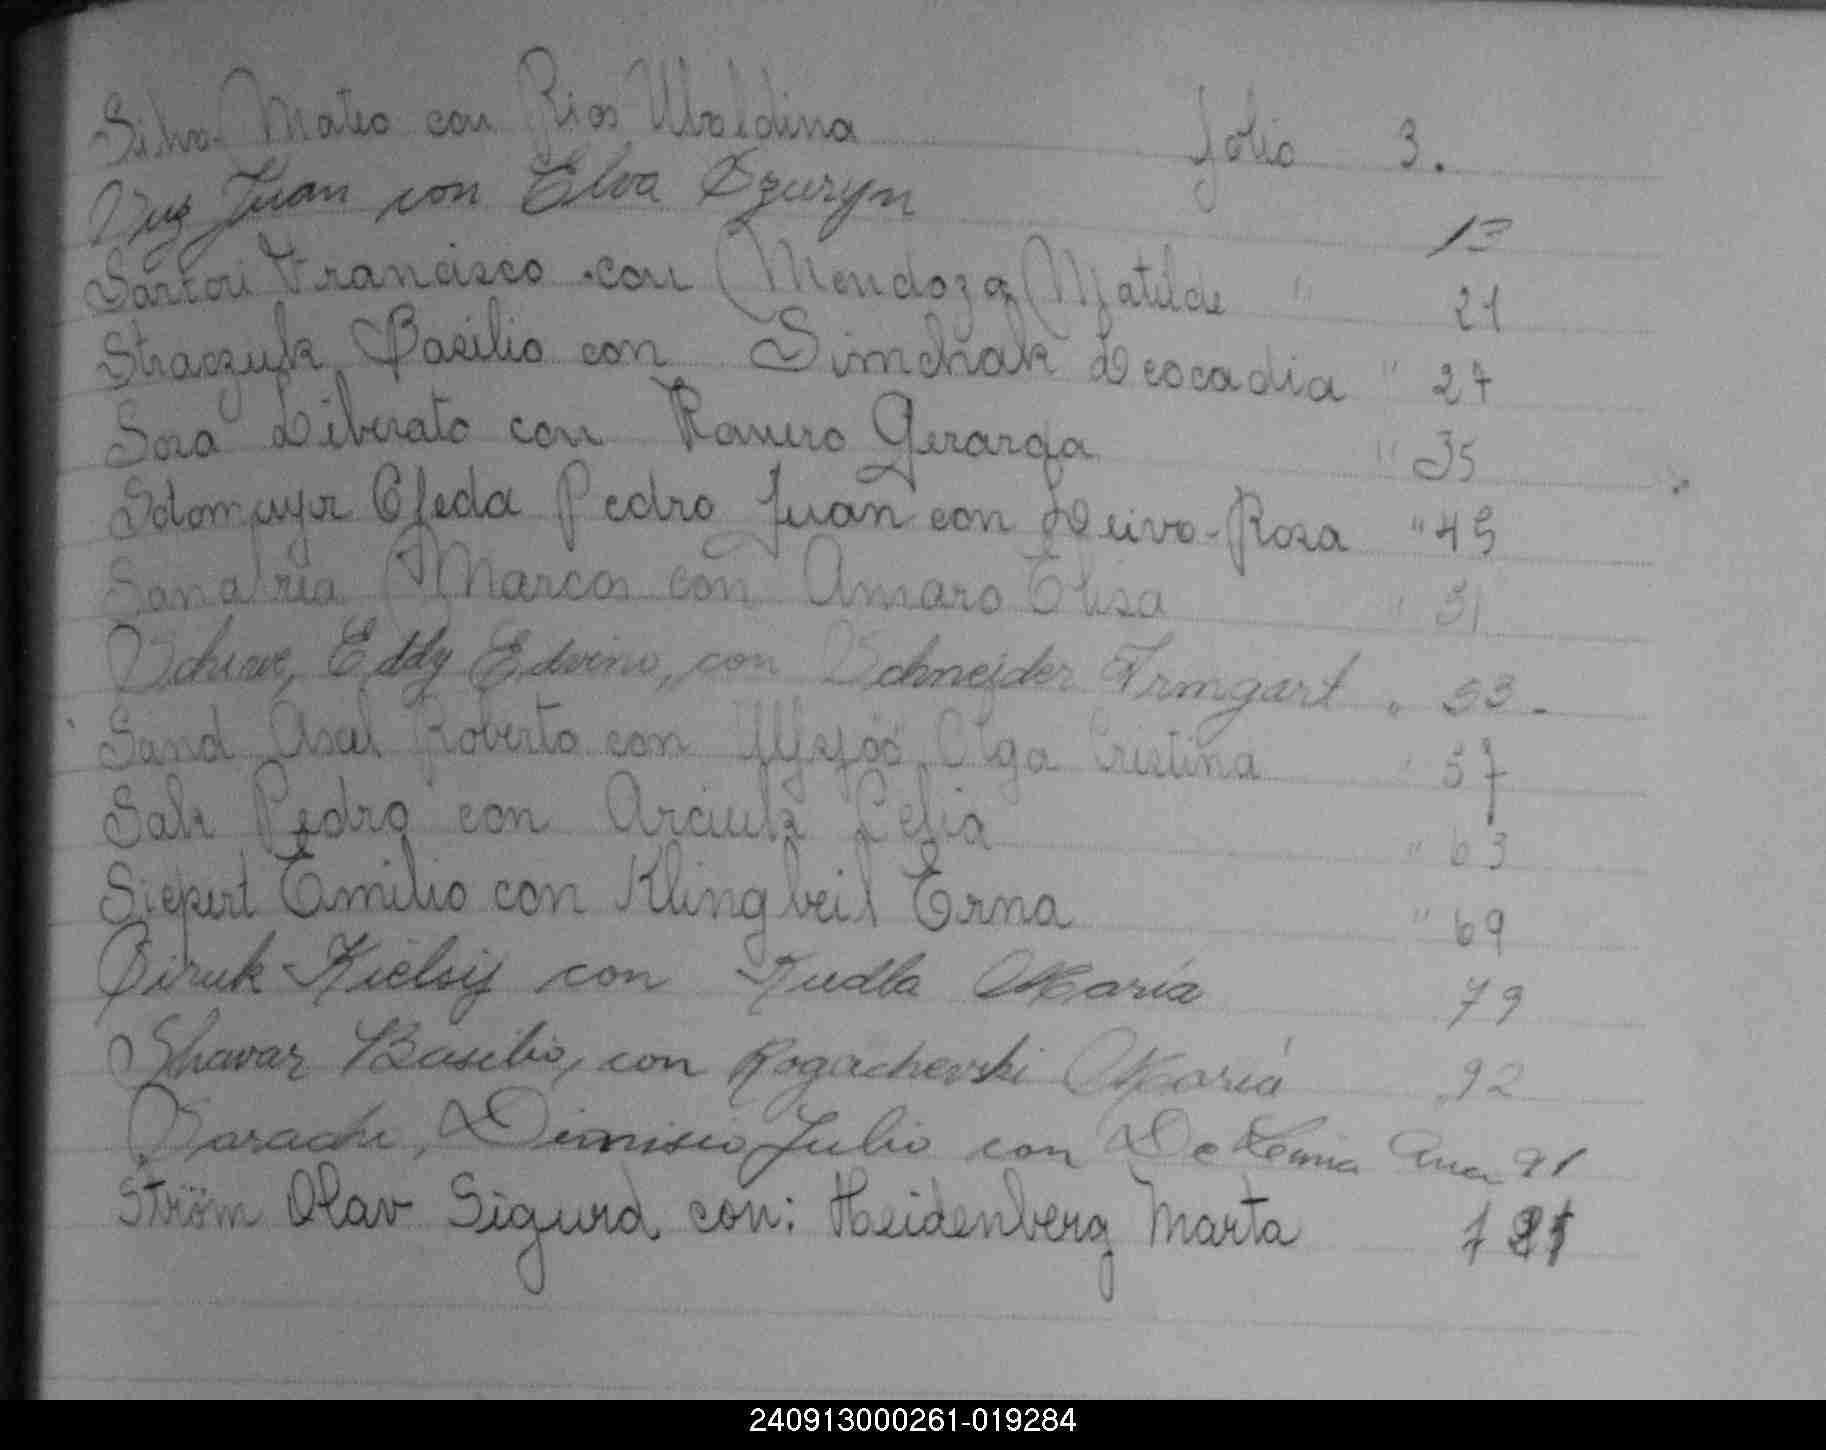 Silva Mateo con Rios Ubaldina folio 3.
Juan con Elva Szuryn 13
Sartori Francisco con Mendoza Matilde " 21
Straczuk Basilio con Simchak Leocadia " 27
Sosa Liberato con Ramiro Gerarda " 35
Sotomayor Ojeda Pedro Juan con Leiva-Rosa " 45
Sanabria Marcos con Amaro Elisa " 51
Eddy Edvino, con Schnejder Irmgart " 53.
Sand Axel Roberto con Olga Cristina " 57
Sak Pedro con Arciuk Celia " 63
Siepert Emilio con Klingbeil Erna " 69
Siruk Kielsij con Kudla María 79
Shavar Basilio, con Rogachevski María 92
Sarache, Dionisio Julio con De Ana 91
Ström Olav Sigurd con: Heidenberg Marta
240913000261-019284